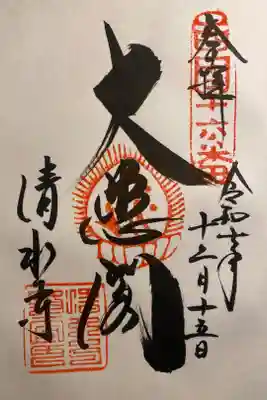 奉拝
西国十六番
令和
十二月十五日
大悲閣
清水寺